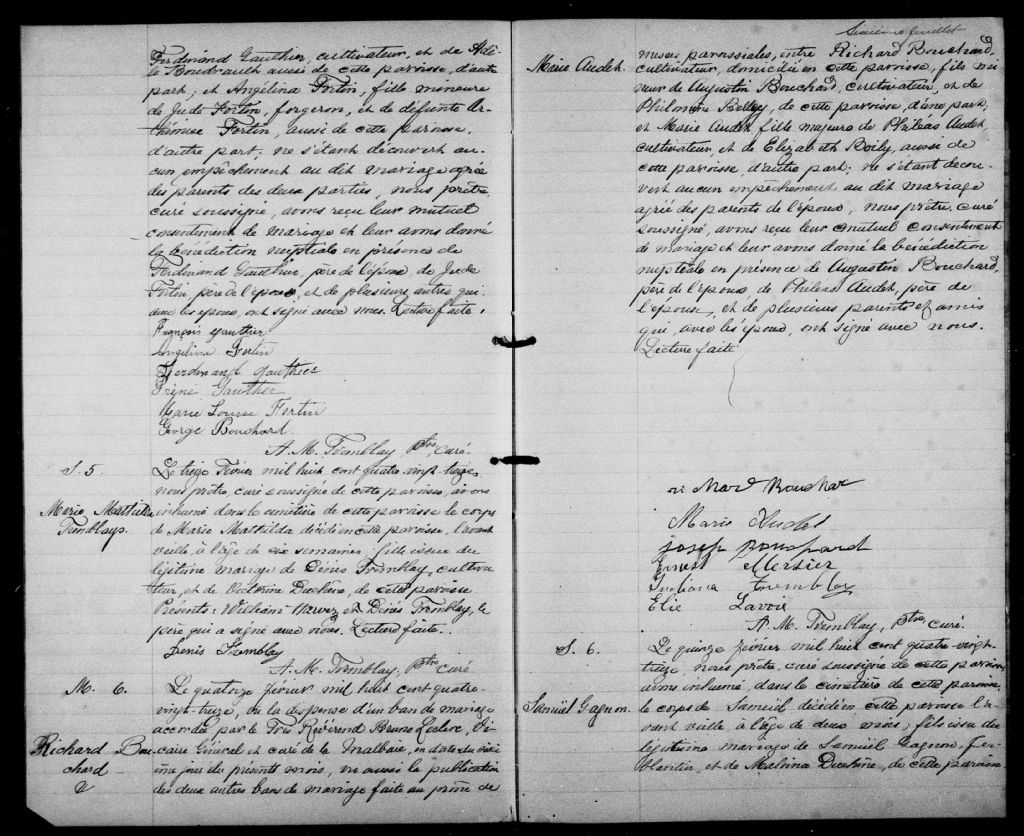 Ferdinand Gauthier, cultivateur, et de Adè-
le Boudreault aussi de cette paroisse, d'autre
part; et Angélina Fortin, fille mineure
de Jude Fortin, forgeron, et de défunte Ar-
thémise Fortin, aussi de cette paroisse,
d'autre part; ne s'étant découvert au-
cun empêchement au dit mariage agréé
des parents des deux parties, nous prêtre
curé soussigné, avons reçu leur mutuel
consentement de mariage et leur avons donné
la bénédiction nuptiale en présence de
Ferdinand Gauthier, père de l'époux, de Jude
Fortin, père de l'épouse, et de plusieurs autres qui
avec les époux, ont signé avec nous. Lecture faite.
François Gauthier
Angélina Fortin
Ferdinand Gauthier
Irène Gauthier
Marie Louise Fortin
George Bouchard
A. M. Tremblay, Ptre, curé.
S. 5.
Marie Mathilda
Tremblay.
Le treize Février mil huit cent quatre-vingt-treize,
nous prêtre, curé soussigné de cette paroisse, avons
inhumé dans le cimetière de cette paroisse le corps
de Marie Mathilda décédée en cette paroisse, l'avant
veille, à l'âge de six semaines, fille issue du
légitime mariage de Denis Tremblay, cultiva-
teur, et de Victorine Duchêne, de cette paroisse
Présents: William et Denis Tremblay, le
père qui a signé avec nous. Lecture faite.
Denis Tremblay
A. M. Tremblay, Ptre curé
M. 6.
Richard Bou-
chard
&
Le quatorze février mil huit cent quatre-
vingt-treize, vu la dispense d'un ban de mariage
accordée par le Très Révérend Bruno Leclerc, Vi-
caire Général et curé de la Malbaie, en date du
jour du présent mois, vu aussi la publication
des deux autres bans de mariage faite au prône de
Sixième feuillet
Marie Audet.
messes paroissiales, entre Richard Bouchard,
cultivateur, domicilié en cette paroisse, fils mi-
neur de Augustin Bouchard, cultivateur, et de
Philomène Belley, de cette paroisse, d'une part;
et Marie Audet, fille majeure de Philéas Audet,
cultivateur, et de Elizabeth Boily, aussi de
cette paroisse, d'autre part; ne s'étant décou-
vert aucun empêchement au dit mariage
agréé des parents de l'époux, nous prêtre, curé
soussigné, avons reçu leur mutuel consentement
de mariage et leur avons donné la bénédiction
nuptiale en présence de Augustin Bouchard,
père de l'époux, de Philéas Audet, père de
l'épouse, et de plusieurs parents et amis
qui, avec les époux, ont signé avec nous.
Lecture faite
Bouchar
Marie Audet
Josep Bouchard
Ernest Mersier
Juliana Tremblay
Elie Lavoie
A. M. Tremblay, Ptre, curé.
S. 6.
Samuël Gagnon.
Le quinze février mil huit cent quatre-vingt-
treize, nous prêtre, curé soussigné de cette paroisse
avons inhumé, dans le cimetière de cette paroisse,
le corps de Samuël décédé en cette paroisse l'a-
vant veille à l'âge de deux mois; fils issu du
légitime mariage de Samuël Gagnon, fer-
blantier, et de Malvina Duchêne, de cette paroisse.